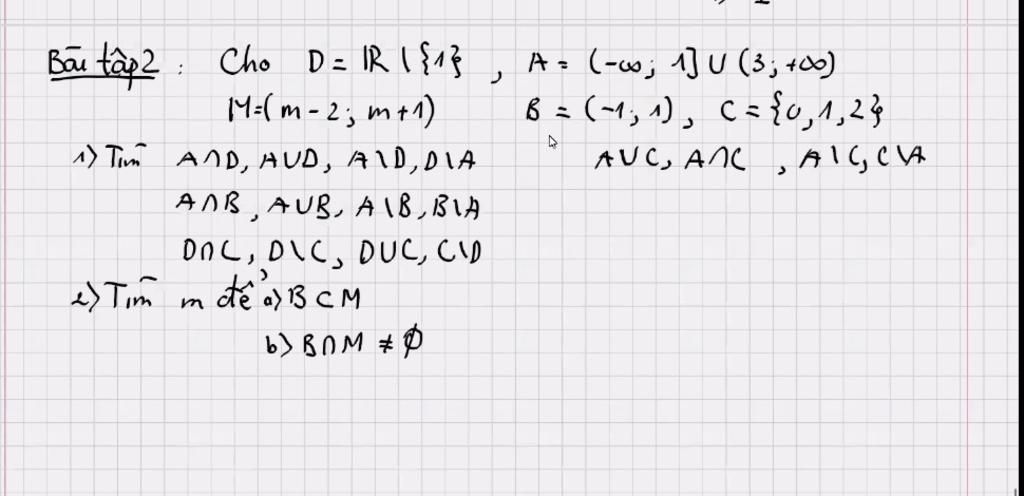 Bài tập 2 : Cho D = ℝ \ {1} , A = (-∞; 1] ∪ (3; +∞)
M=(m-2; m+1) B = (-1; 1), C = {0, 1, 2}
1) Tìm A∩D, A∪D, A\D, D\A A∪C, A∩C , A\C, C\A
A∩B, A∪B, A\B, B\A
D∩C, D\C, D∪C, C\D
2) Tìm m để a) B ⊂ M
b) B∩M ≠ ∅